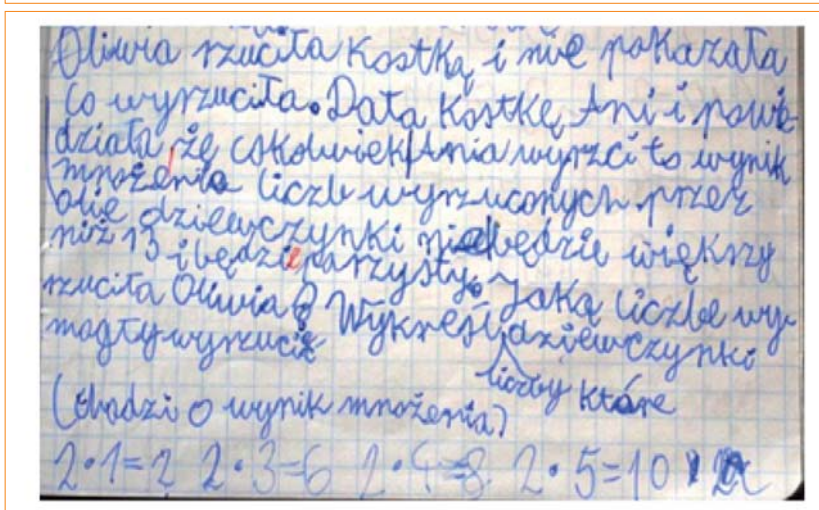 Oliwia rzuciła kostką i nie pokazała
co wyrzuciła. Dała kostkę Ani i powie-
działa, że cokolwiek Ania wyrzci to wynik
mnożenia liczb wyrzuconych przez
obie dziewczynki nie będzie większy
niż 13 i będzie parzysty. Jaką liczbe wy-
rzuciła Oliwia? Wykreśl dziewczynki
mogły wyrzucić
liczby które
(chodzi o wynik mnożenia)
2·1=2 2·3=6 2·4=8 2·5=10